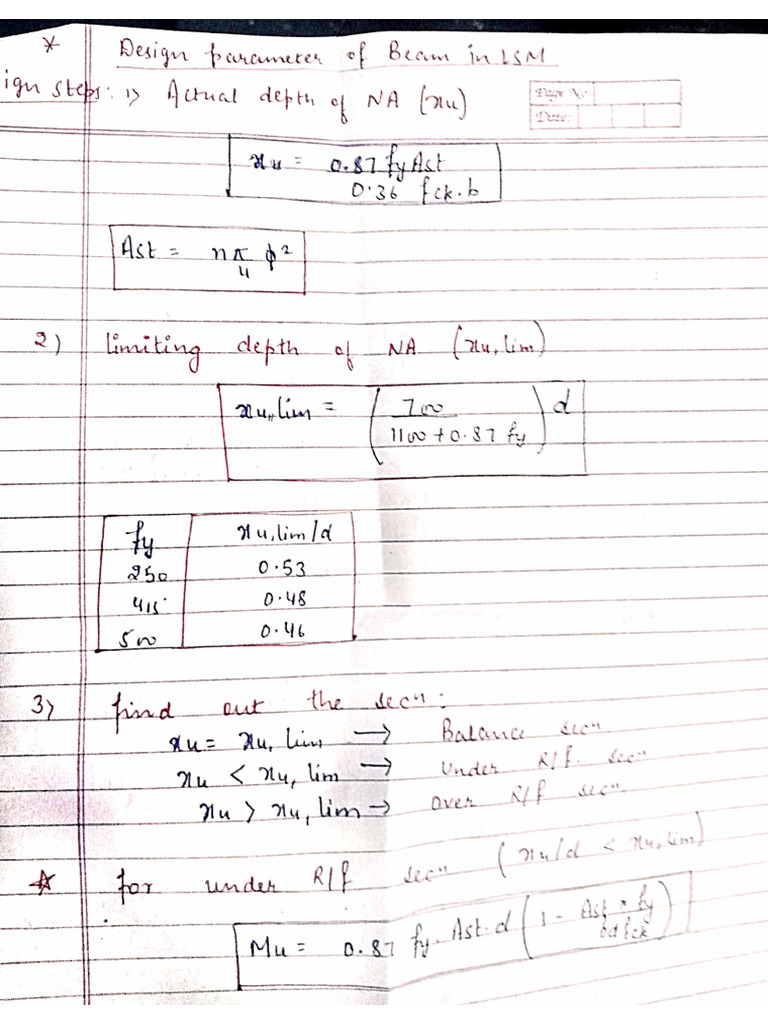 * Design parameter of Beam in LSM
ign steps: 1) Actual depth of NA (xu)
Page No:
Date:
xu = 0.87 fy Ast
0.36 fck.b
Ast = n π ϕ²
4
2) limiting depth of NA (xu, lim)
xu, lim = ( 700 ) d
1100 + 0.87 fy
fy xu, lim/d
250 0.53
415 0.48
500 0.46
3) find out the secⁿ:
xu = xu, lim → Balance secⁿ
xu < xu, lim → Under R/f. secⁿ
xu > xu, lim → Over R/f secⁿ
☆ for under R/f secⁿ (xu/d < xu, lim)
Mu = 0.87 fy. Ast. d ( 1 - Ast × fy )
bd fck